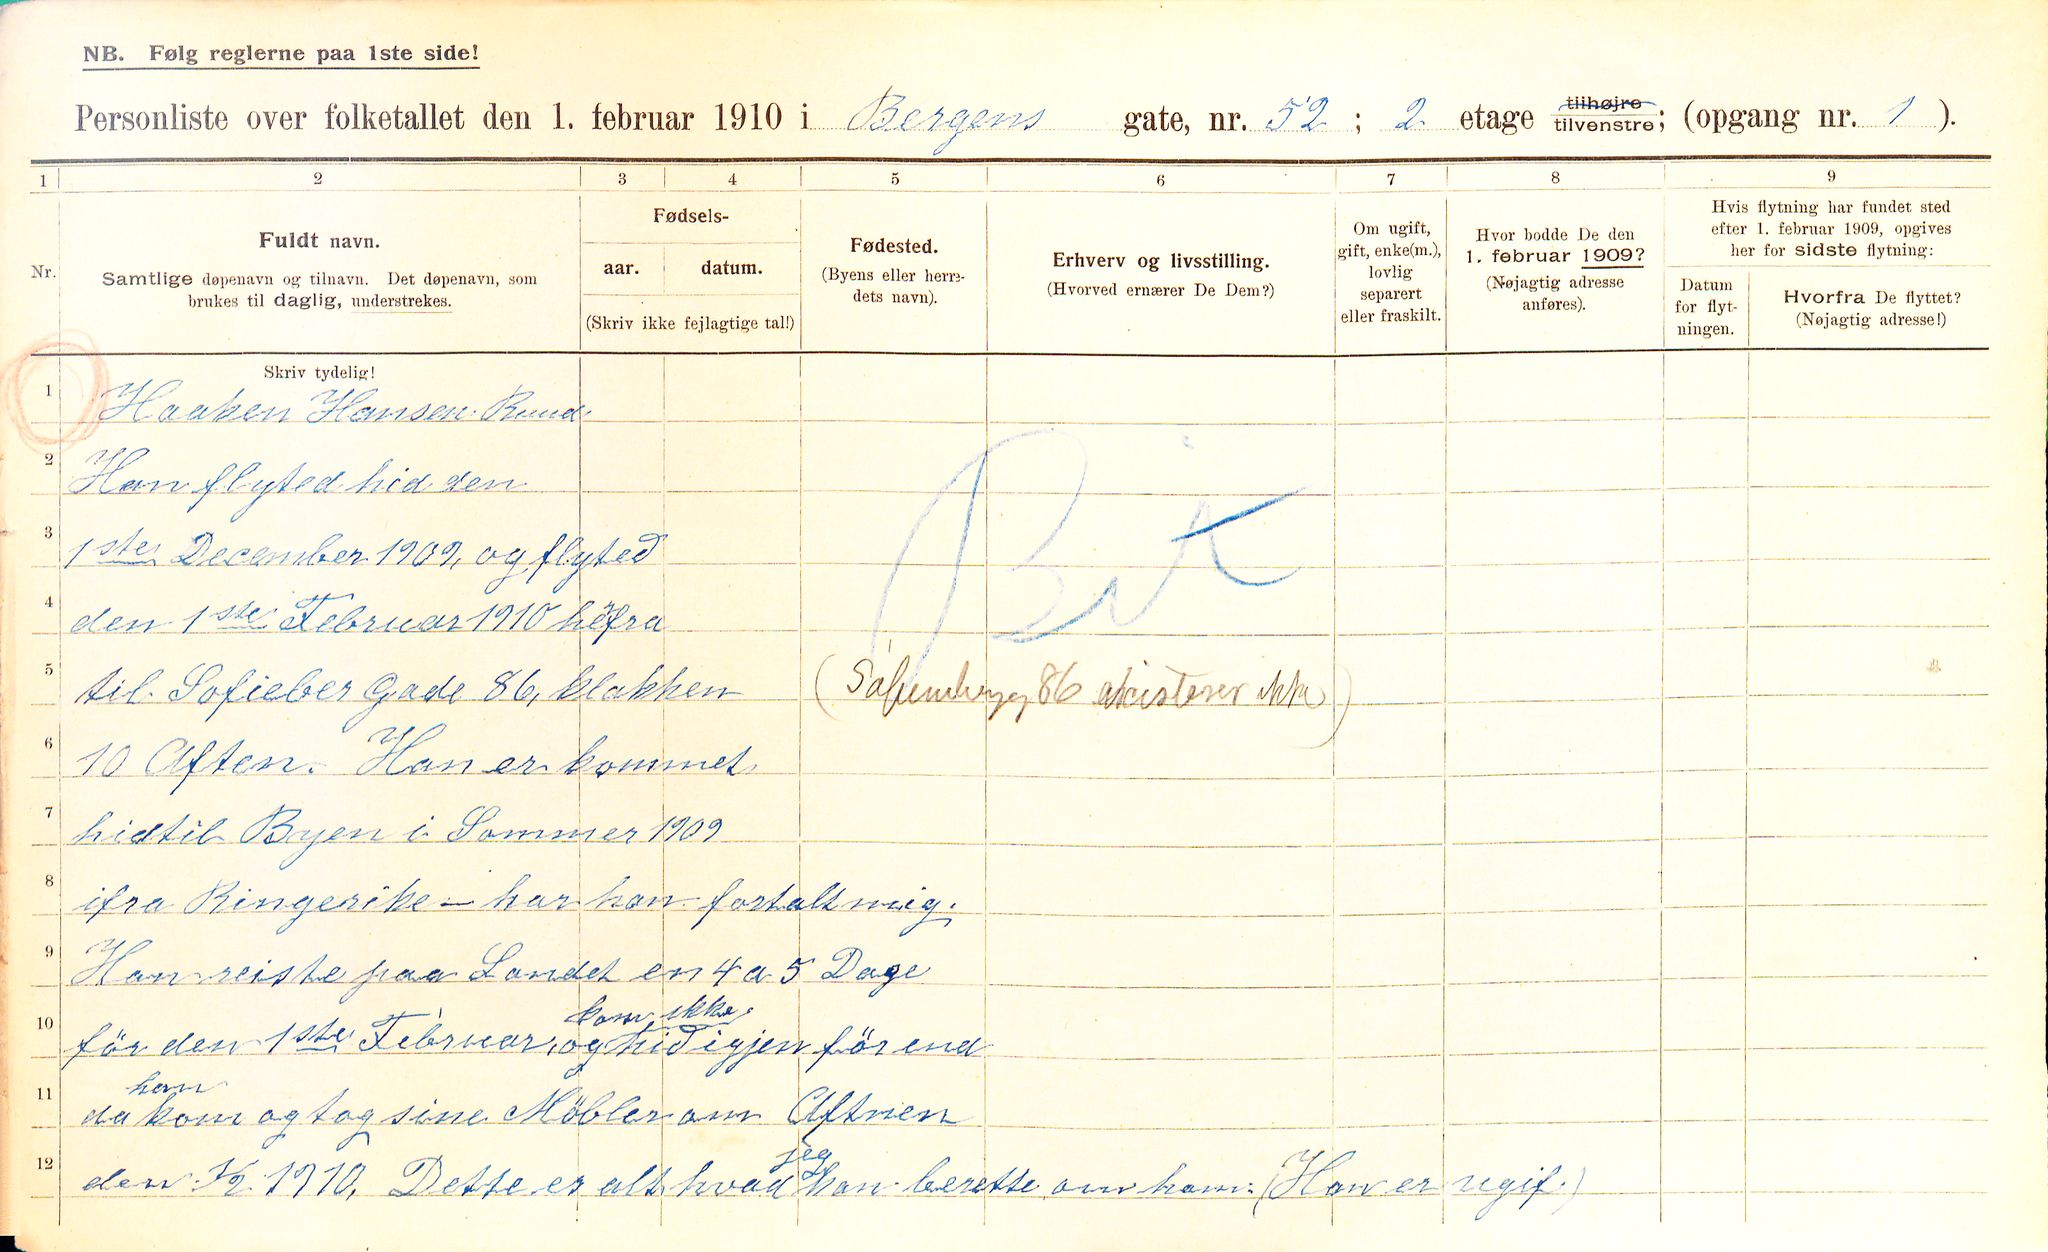 NB. Følg reglerne paa 1ste side!
Personliste over folketallet den 1. februar 1910 i Bergens gate, nr. 52 ; 2 etage tilhøjre tilvenstre; (opgang nr. 1 ).
1 2 3 4 5 6 7 8 9
Nr.
Fuldt navn.
Samtlige døpenavn og tilnavn. Det døpenavn, som
brukes til daglig, understrekes.
Fødsels-
aar. datum.
(Skriv ikke fejlagtige tal!)
Fødested.
(Byens eller herre-
dets navn).
Erhverv og livsstilling.
(Hvorved ernærer De Dem?)
Om ugift,
gift, enke(m.),
lovlig
separert
eller fraskilt.
Hvor bodde De den
1. februar 1909?
(Nøjagtig adresse
anføres).
Hvis flytning har fundet sted
efter 1. februar 1909, opgives
her for sidste flytning:
Datum
for flyt-
ningen.
Hvorfra De flyttet?
(Nøjagtig adresse!)
Skriv tydelig!
1 Haaken Hansen Ruud.
2 Han flyted hid den
3 1ste December 1909, og flyted
4 den 1ste Februar 1910 hefra
5 til Sofieber Gade 86, klokken (86 eksisterer ikke)
6 10 Aften. Han er kommet
7 hidtil Byen i Sommer 1909
8 ifra Ringerike – har han fortalt mig.
9 Han reiste paa Landet en 4 a 5 Dage
10 för den 1ste Februar, og kom ikke hid igjen för end
11 da han kom og tog sine Möbler om Aftnen
12 den 1/2 1910. Dette er alt hvad jeg kan berette om ham. (Han er ugif.)